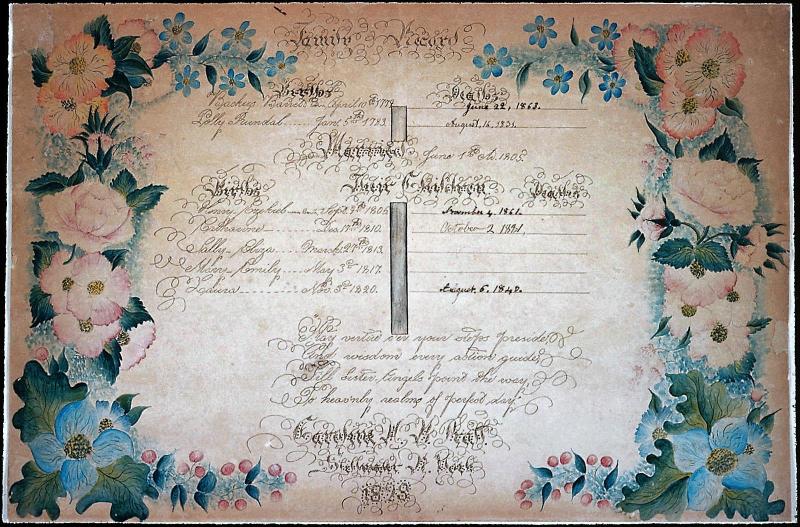 Family Record
Births Deaths
Barrett April 10th 1779 June 22, 1863.
Polly Rundal Jan. 5th 1783 August, 16, 1831.
Married June 1st A. 1805
Births Their Children Deaths
Henry Ezekiel Sept. 9th 1806 November 4, 1861.
Dec. 17th 1810. October 2 1891.
Sally Eliza March 27th 1813.
Mary Emily May 3rd 1817.
Laura Nov. 3rd 1820. August 6, 1848.
May virtue o'er your steps preside,
And wisdom every action guide,
Till Sister Angels point the way,
To heavenly realms of perfect day.
Caroline